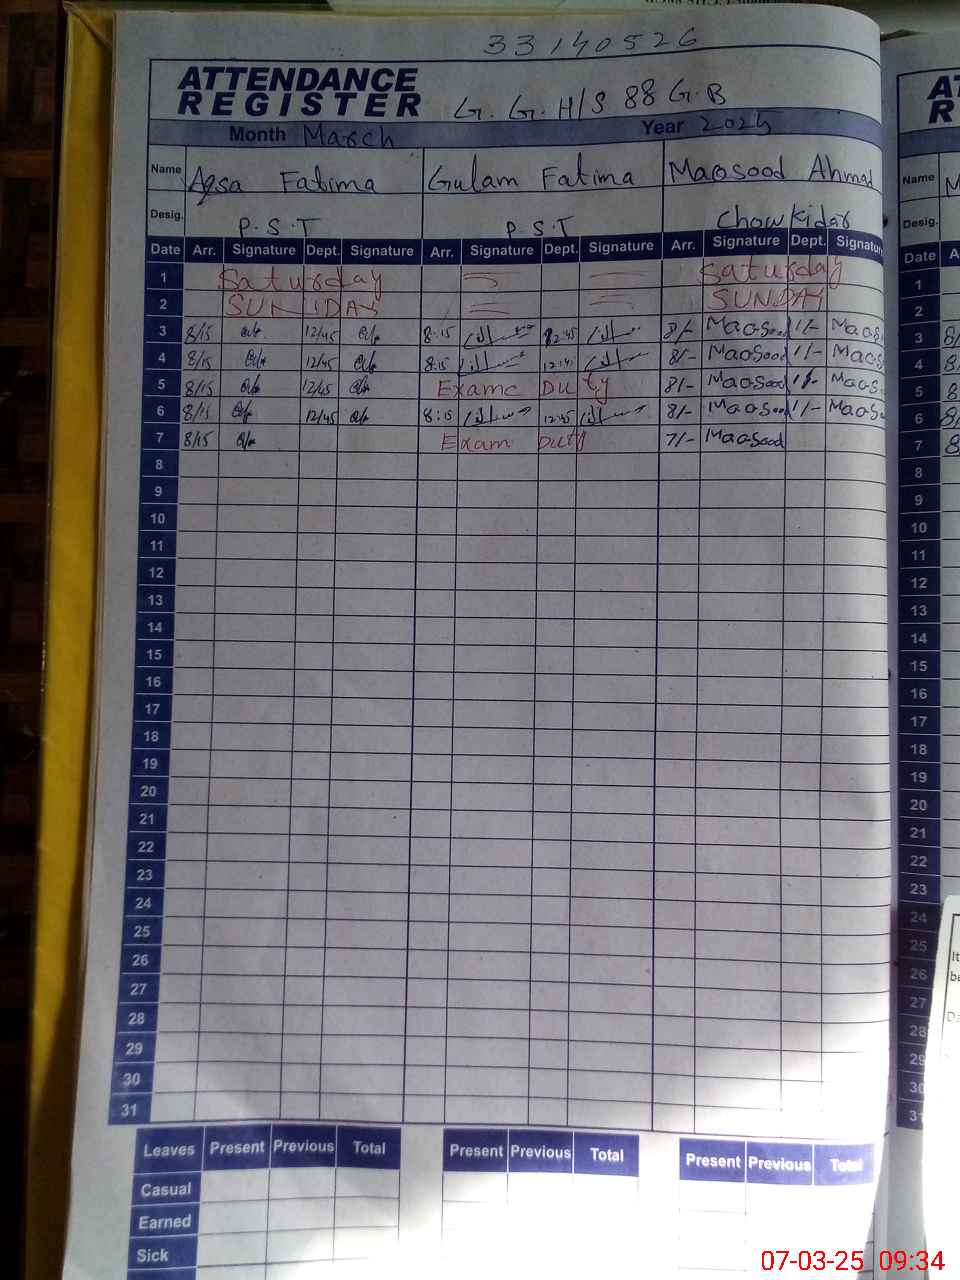 33140526
ATTENDANCE
REGISTER
G. G. H/S 88 G.B
Month March Year 2025
Name Aqsa Fatima Gulam Fatima Maqsood Ahmad
Desig. P.S.T P.S.T Chowkidar
Date Arr. Signature Dept. Signature Arr. Signature Dept. Signature Arr. Signature Dept. Signature
1 Saturday Saturday
2 SUNDAY SUNDAY
3 8/15 12/45 8:15 12:45 8/- Maqsood 1/- Maqs
4 8/15 12/45 8:15 8/- Maqsood 1/- Maqs
5 8/15 12/45 Exame Duty 8/- Maqsood 1/- Maqs
6 8/15 12/45 8:15 12:45 8/- Maqsood 1/- Maqs
7 8/15 Exam Duty 7/- Maqsood
8
9
10
11
12
13
14
15
16
17
18
19
20
21
22
23
24
25
26
27
28
29
30
31
Leaves Present Previous Total Present Previous Total Present Previous Total
Casual
Earned
Sick
AT
R
Name M
Desig.
Date A
1
2
3
4
5
6
7
8
9
10
11
12
13
14
15
16
17
18
19
20
21
22
23
24
25
26
27
28
29
30
31
It
be
Da
07-03-25 09:34